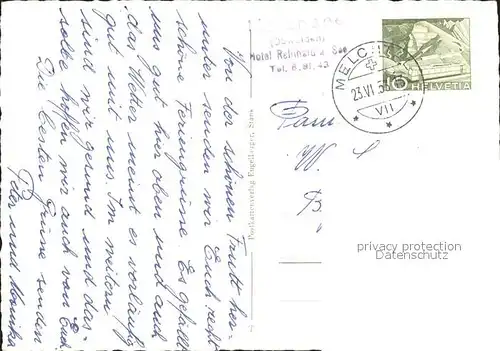 Von der schönen Frutt her-
unter senden wir Euch recht
schöne Feriengrüsse. Es gefällt
uns gut hier oben und auch
das Wetter meint es vorläufig
gut mit uns. Im weitern
sind wir gesund und das-
selbe hoffen wir auch von Euch
Die besten Grüsse senden
Peter und Monika
Postkartenverlag Engelberger, Stans
Hotel Reinhard a. See
Tel. 8.81.43
MELCHSEE
23.VI.5
VII
HELVETIA
Fam
W.
privacy protection
Datenschutz